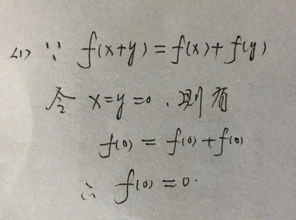 (1) ∵ f(x+y)=f(x)+f(y)
令 x=y=0,则有
f(0)=f(0)+f(0)
∴ f(0)=0.